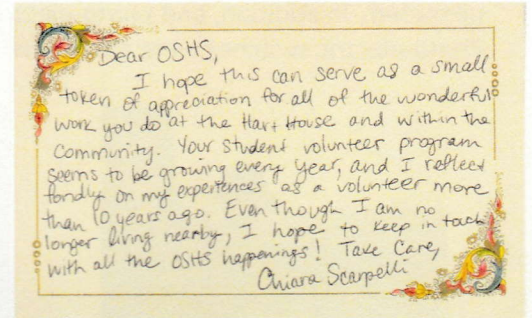 Dear OSHS,
I hope this can serve as a small
token of appreciation for all of the wonderful
work you do at the Hart House and within the
community. Your student volunteer program
seems to be growing every year, and I reflect
fondly on my experiences as a volunteer more
than 10 years ago. Even though I am no
longer living nearby, I hope to keep in touch
with all the OSHS happenings! Take Care,
Chiara Scarpelli